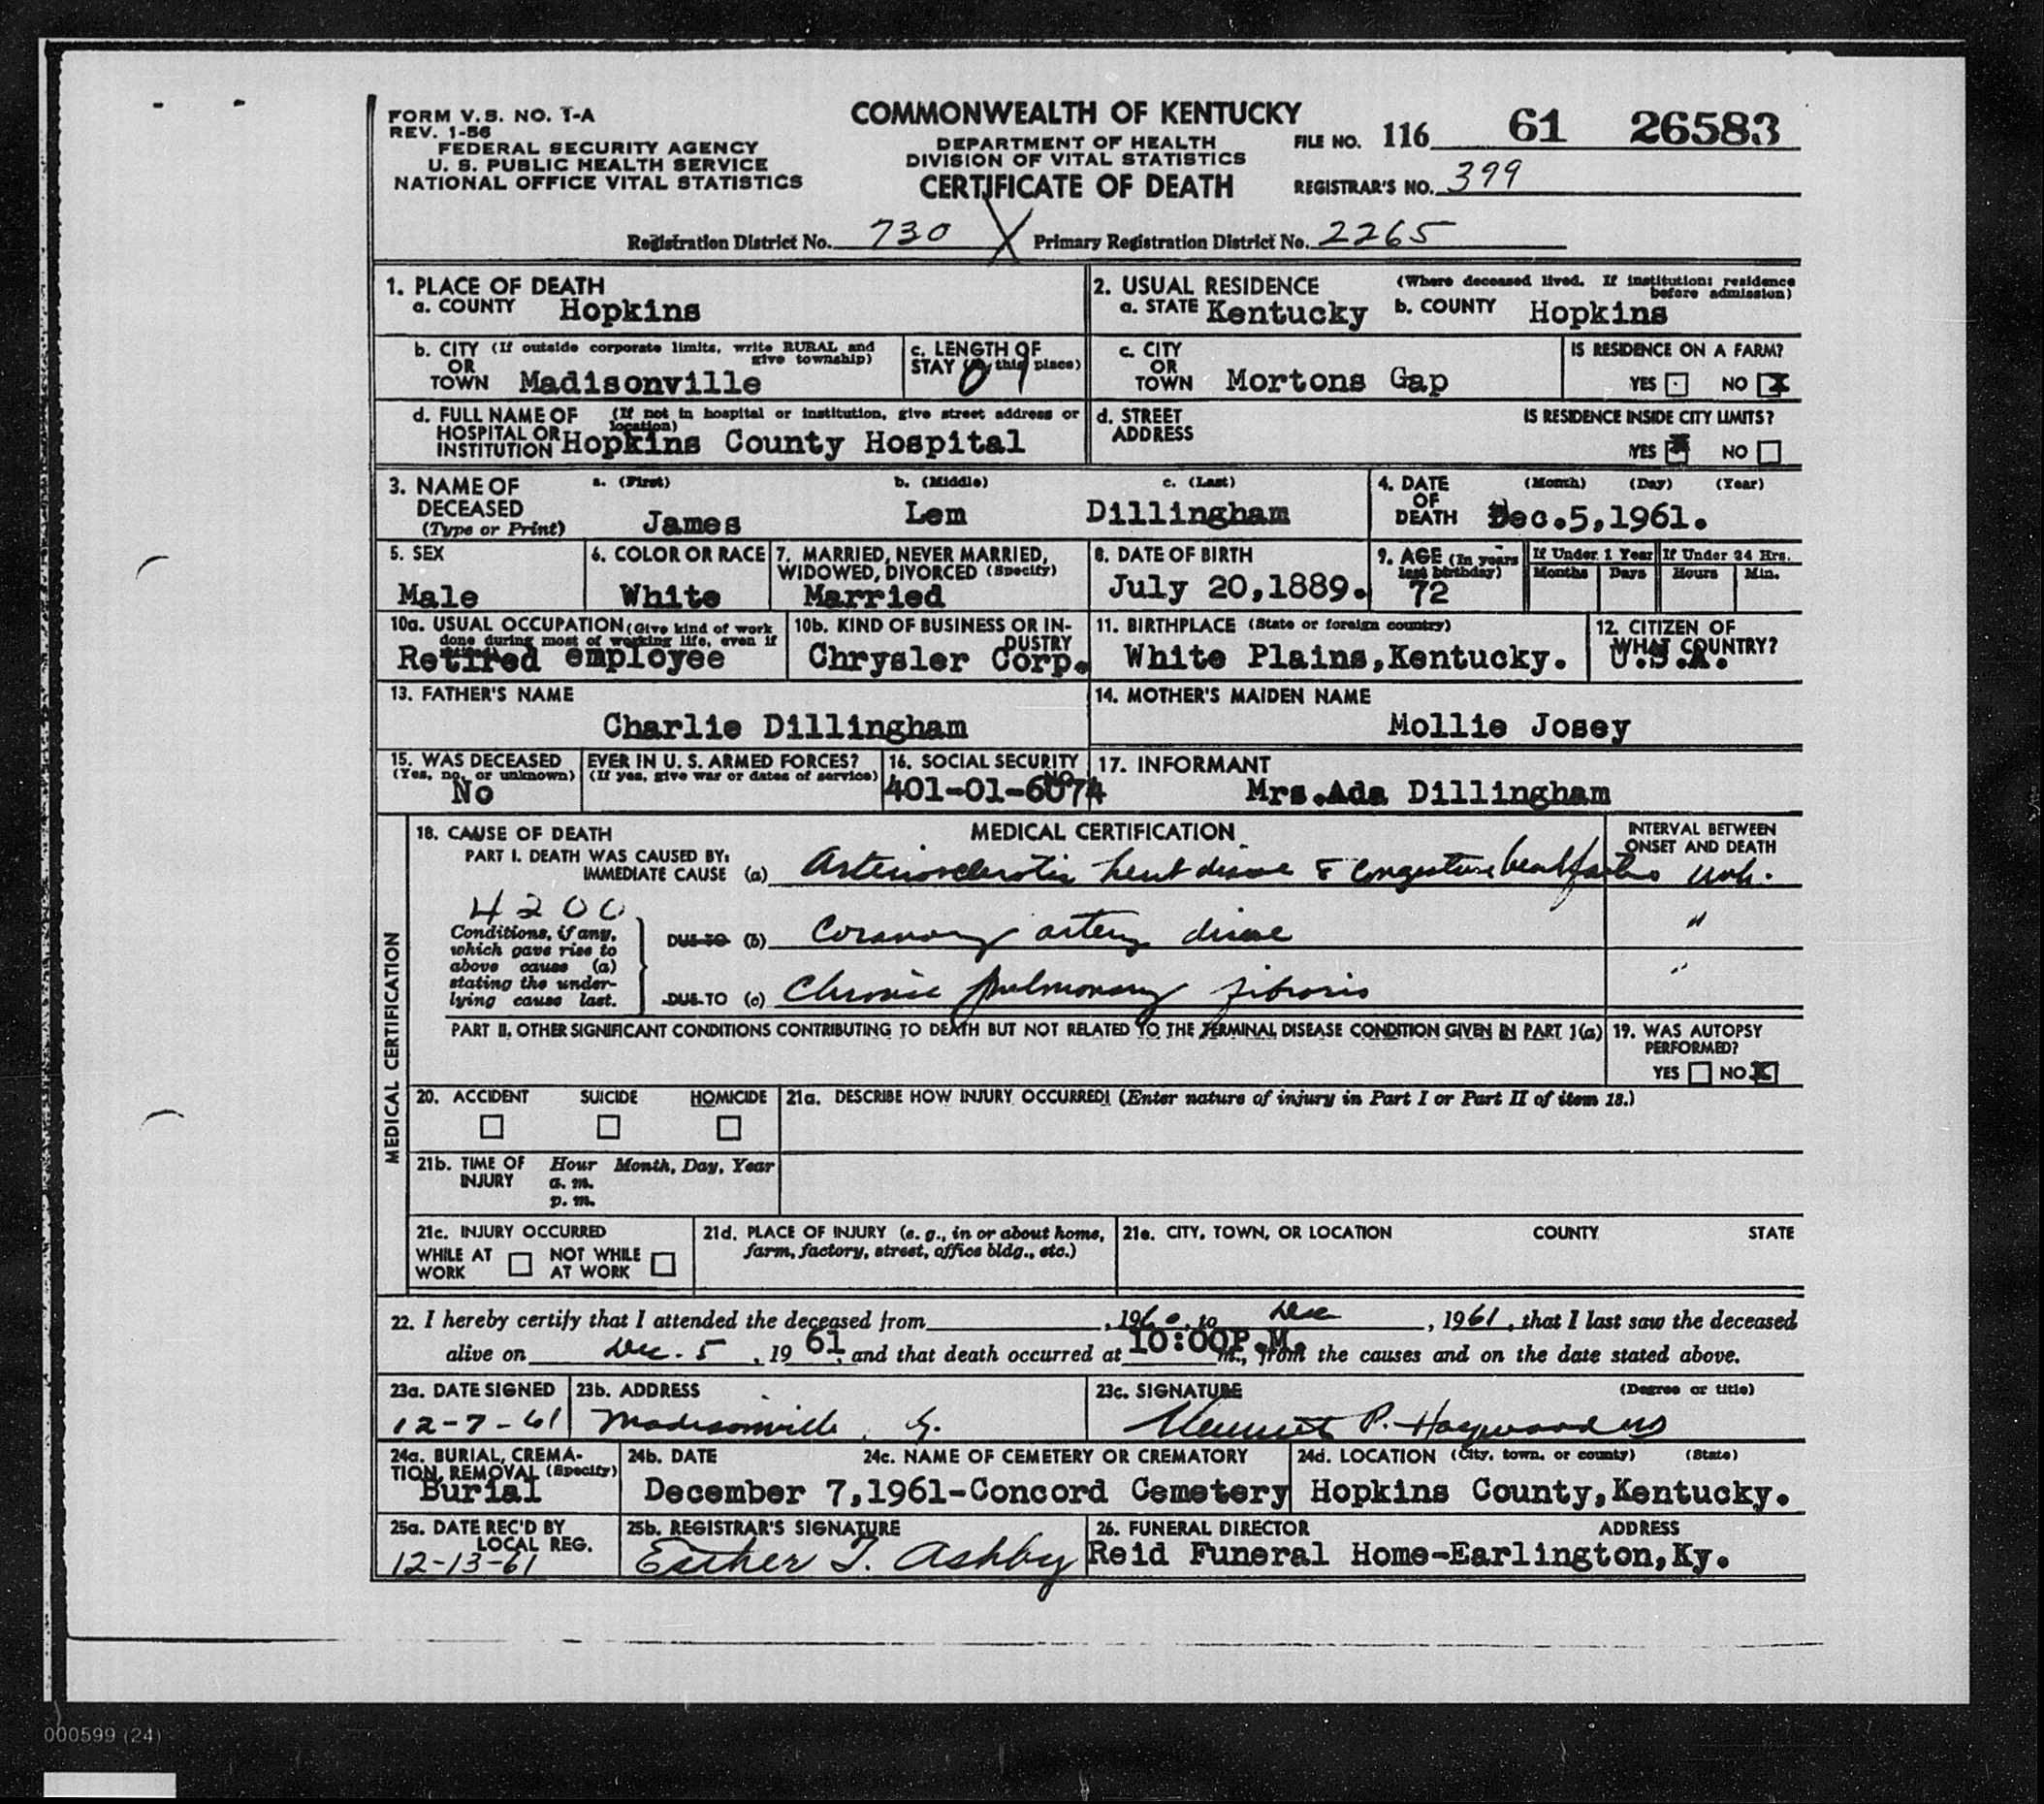 FORM V.S. NO. 1-A
REV. 1-56
FEDERAL SECURITY AGENCY
U. S. PUBLIC HEALTH SERVICE
NATIONAL OFFICE VITAL STATISTICS
COMMONWEALTH OF KENTUCKY
DEPARTMENT OF HEALTH
DIVISION OF VITAL STATISTICS
CERTIFICATE OF DEATH
FILE NO. 116 61 26583
REGISTRAR'S NO. 399
Registration District No. 730 X Primary Registration District No. 2265
1. PLACE OF DEATH
a. COUNTY Hopkins
2. USUAL RESIDENCE (Where deceased lived. If institution: residence before admission)
a. STATE Kentucky b. COUNTY Hopkins
b. CITY (If outside corporate limits, write RURAL and give township)
OR
TOWN Madisonville
c. LENGTH OF
STAY (in this place)
c. CITY
OR
TOWN Mortons Gap
IS RESIDENCE ON A FARM?
YES NO X
d. FULL NAME OF (If not in hospital or institution, give street address or location)
HOSPITAL OR
INSTITUTION Hopkins County Hospital
d. STREET
ADDRESS
IS RESIDENCE INSIDE CITY LIMITS?
YES X NO
3. NAME OF
DECEASED
(Type or Print)
a. (First) b. (Middle) c. (Last)
James Lem Dillingham
4. DATE
OF
DEATH
(Month) (Day) (Year)
Dec.5,1961.
5. SEX
Male
6. COLOR OR RACE
White
7. MARRIED, NEVER MARRIED,
WIDOWED, DIVORCED (Specify)
Married
8. DATE OF BIRTH
July 20,1889.
9. AGE (In years
last birthday)
72
If Under 1 Year If Under 24 Hrs.
Months Days Hours Min.
10a. USUAL OCCUPATION (Give kind of work
done during most of working life, even if
Retired employee
10b. KIND OF BUSINESS OR IN-
DUSTRY
Chrysler Corp.
11. BIRTHPLACE (State or foreign country)
White Plains,Kentucky.
12. CITIZEN OF
WHAT COUNTRY?
U.S.A.
13. FATHER'S NAME
Charlie Dillingham
14. MOTHER'S MAIDEN NAME
Mollie Josey
15. WAS DECEASED EVER IN U. S. ARMED FORCES?
(Yes, no, or unknown) (If yes, give war or dates of service)
No
16. SOCIAL SECURITY
NO.
401-01-6074
17. INFORMANT
Mrs.Ada Dillingham
MEDICAL CERTIFICATION
18. CAUSE OF DEATH
MEDICAL CERTIFICATION
INTERVAL BETWEEN
ONSET AND DEATH
PART I. DEATH WAS CAUSED BY:
IMMEDIATE CAUSE (a) Arteriosclerotic heart disease congestive heart failure unk.
4200
Conditions, if any,
which gave rise to
above cause (a)
stating the under-
lying cause last.
DUE TO (b) Coronary artery disease "
DUE TO (c) Chronic pulmonary fibrosis "
PART II. OTHER SIGNIFICANT CONDITIONS CONTRIBUTING TO DEATH BUT NOT RELATED TO THE TERMINAL DISEASE CONDITION GIVEN IN PART 1(a)
19. WAS AUTOPSY
PERFORMED?
YES NO X
20. ACCIDENT SUICIDE HOMICIDE
21a. DESCRIBE HOW INJURY OCCURRED! (Enter nature of injury in Part I or Part II of item 18.)
21b. TIME OF
INJURY
Hour Month, Day, Year
a. m.
p. m.
21c. INJURY OCCURRED
WHILE AT
WORK
NOT WHILE
AT WORK
21d. PLACE OF INJURY (e. g., in or about home,
farm, factory, street, office bldg., etc.)
21e. CITY, TOWN, OR LOCATION COUNTY STATE
22. I hereby certify that I attended the deceased from , 1960, to Dec , 1961, that I last saw the deceased
alive on Dec. 5 , 19 61 and that death occurred at 10:00P.M. m., from the causes and on the date stated above.
23a. DATE SIGNED
12-7-61
23b. ADDRESS
Madisonville
23c. SIGNATURE (Degree or title)
P. Haywood MD
24a. BURIAL, CREMA-
TION, REMOVAL (Specify)
Burial
24b. DATE 24c. NAME OF CEMETERY OR CREMATORY
December 7,1961-Concord Cemetery
24d. LOCATION (City, town, or county) (State)
Hopkins County,Kentucky.
25a. DATE REC'D BY
LOCAL REG.
12-13-61
25b. REGISTRAR'S SIGNATURE
Esther T. Ashby
26. FUNERAL DIRECTOR ADDRESS
Reid Funeral Home-Earlington,Ky.
000599 (24)